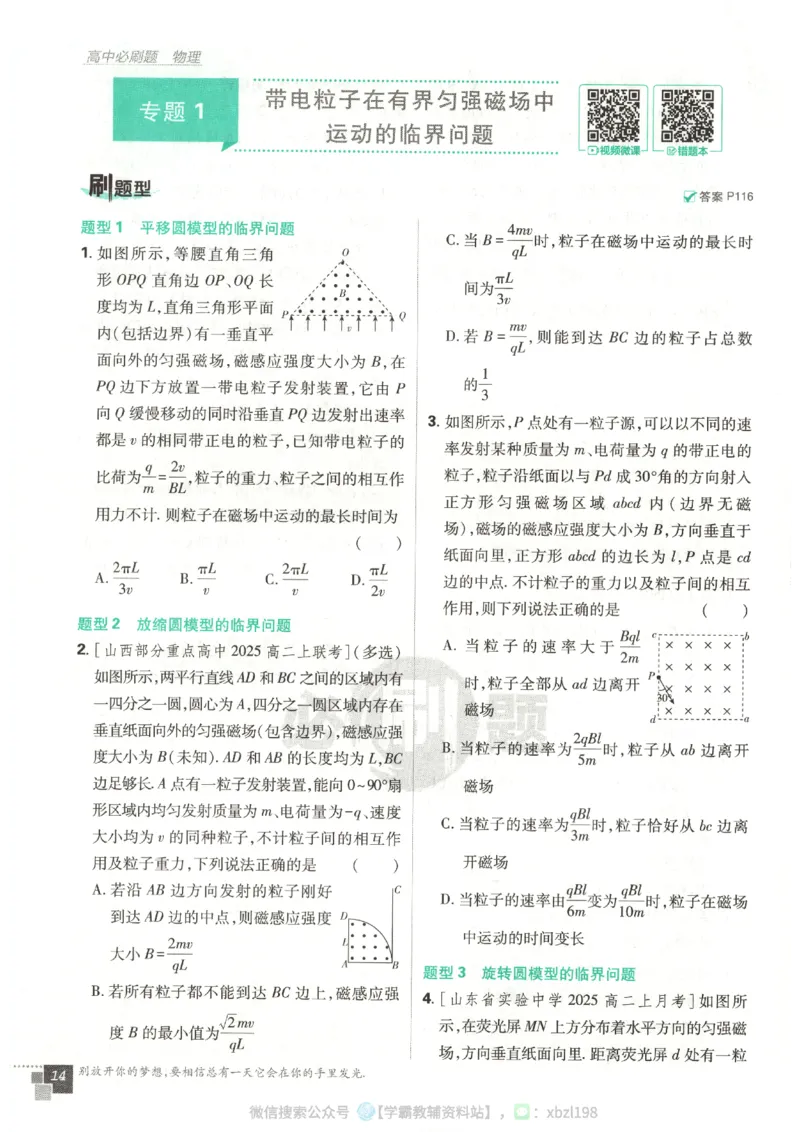 高中必刷题 物理
专题 1
带电粒子在有界匀强磁场中
运动的临界问题
视频微课
错题本
刷题型
答案 P116
题型 1 平移圆模型的临界问题
1. 如图所示,等腰直角三角
形 OPQ 直角边 OP、OQ 长
度均为 L,直角三角形平面
内(包括边界)有一垂直平
面向外的匀强磁场,磁感应强度大小为 B,在
PQ 边下方放置一带电粒子发射装置,它由 P
向 Q 缓慢移动的同时沿垂直 PQ 边发射出速率
都是 v 的相同带正电的粒子,已知带电粒子的
比荷为 q/m = 2v/BL,粒子的重力、粒子之间的相互作
用力不计. 则粒子在磁场中运动的最长时间为
( )
A. 2πL/3v B. πL/v C. 2πL/v D. πL/2v
O
B
P
Q
v
题型 2 放缩圆模型的临界问题
2. [山西部分重点高中 2025 高二上联考](多选)
如图所示,两平行直线 AD 和 BC 之间的区域内有
一四分之一圆,圆心为 A,四分之一圆区域内存在
垂直纸面向外的匀强磁场(包含边界),磁感应强
度大小为 B(未知). AD 和 AB 的长度均为 L,BC
边足够长. A 点有一粒子发射装置,能向 0~90°扇
形区域内均匀发射质量为 m、电荷量为-q、速度
大小均为 v 的同种粒子,不计粒子间的相互作
用及粒子重力,下列说法正确的是 ( )
A. 若沿 AB 边方向发射的粒子刚好
到达 AD 边的中点,则磁感应强度
大小 B= 2mv/qL
C
D
L
A
B
B. 若所有粒子都不能到达 BC 边上,磁感应强
度 B 的最小值为 √2mv/qL
C. 当 B= 4mv/qL 时,粒子在磁场中运动的最长时
间为 πL/3v
D. 若 B= mv/qL,则能到达 BC 边的粒子占总数
的 1/3
3. 如图所示,P 点处有一粒子源,可以以不同的速
率发射某种质量为 m、电荷量为 q 的带正电的
粒子,粒子沿纸面以与 Pd 成 30°角的方向射入
正方形匀强磁场区域 abcd 内(边界无磁
场),磁场的磁感应强度大小为 B,方向垂直于
纸面向里,正方形 abcd 的边长为 l,P 点是 cd
边的中点. 不计粒子的重力以及粒子间的相互
作用,则下列说法正确的是 ( )
A. 当粒子的速率大于 Bql/2m
时,粒子全部从 ad 边离开
磁场
c
b
P
30°
d
a
B. 当粒子的速率为 2qBl/5m 时,粒子从 ab 边离开
磁场
C. 当粒子的速率为 qBl/3m 时,粒子恰好从 bc 边离
开磁场
D. 当粒子的速率由 qBl/6m 变为 qBl/10m 时,粒子在磁场
中运动的时间变长
题型 3 旋转圆模型的临界问题
4. [山东省实验中学 2025 高二上月考]如图所
示,在荧光屏 MN 上方分布着水平方向的匀强磁
场,方向垂直纸面向里. 距离荧光屏 d 处有一粒
必刷题
14 别放开你的梦想,要相信总有一天它会在你的手里发光.
微信搜索公众号 【学霸教辅资料站】, : xbzl198